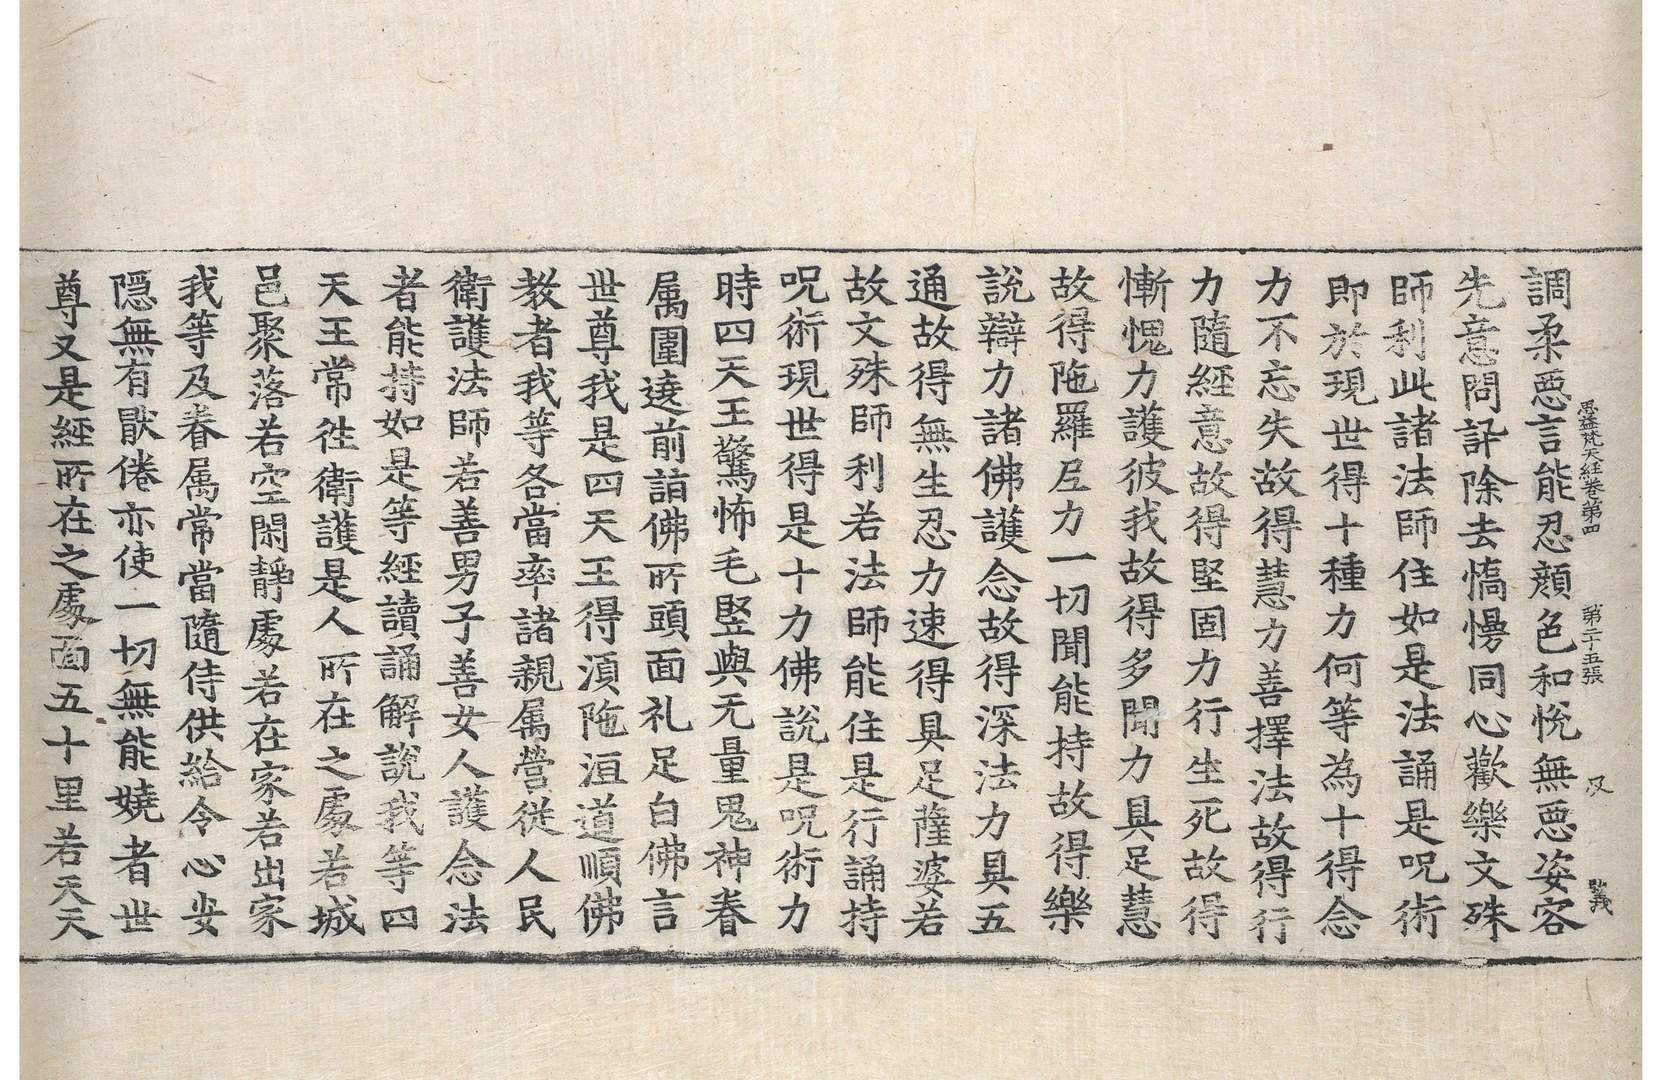 思益梵天經卷第四 第二十五張 及
調柔惡言能忍顏色和悅無惡姿容
先意問訊除去憍慢同心歡樂文殊
師利此諸法師住如是法誦是呪術
即於現世得十種力何等為十得念
力不忘失故得慧力善擇法故得行
力隨經意故得堅固力行生死故得
慚愧力護彼我故得多聞力具足慧
故得陁羅尼力一切聞能持故得樂
說辯力諸佛護念故得深法力具五
通故得無生忍力速得具足薩婆若
故文殊師利若法師能住是行誦持
呪術現世得是十力佛說是呪術力
時四天王驚怖毛竪與无量鬼神眷
属圍遶前詣佛所頭面礼足白佛言
世尊我是四天王得湏陁洹道順佛
教者我等各當率諸親属營從人民
衛護法師若善男子善女人護念法
者能持如是等經讀誦解說我等四
天王常徃衛護是人所在之處若城
邑聚落若空閑靜處若在家若出家
我等及眷属常當隨侍供給令心安
隱無有猒倦亦使一切無能嬈者世
尊又是經所在之處面五十里若天天